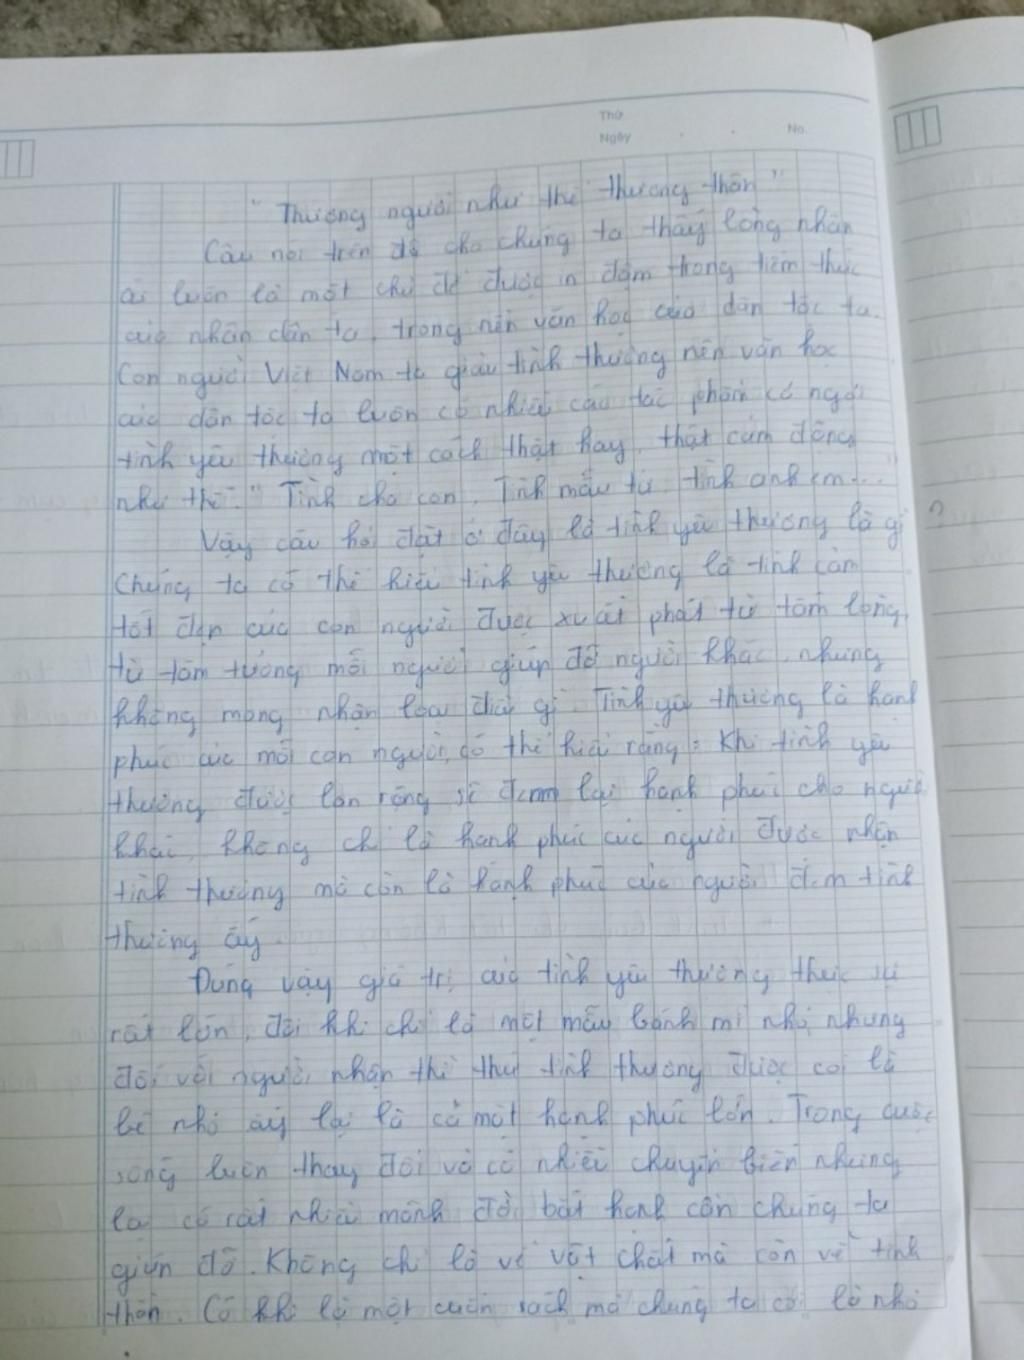 Thứ
Ngày . . No.
" Thương người như thể thương thân "
Câu nói trên đã cho chúng ta thấy lòng nhân
ái luôn là một chủ đề được in đậm trong tiềm thức
của nhân dân ta, trong nền văn học của dân tộc ta.
Con người Việt Nam ta giàu tình thương nên văn học
của dân tộc ta luôn có nhiều các tác phẩm ca ngợi
tình yêu thương một cách thật hay, thật cảm động
như thế: " Tình cha con, Tình mẫu tử, tình anh em ...
Vậy câu hỏi đặt ở đây là tình yêu thương là gì ?
Chúng ta có thể hiểu tình yêu thương là tình cảm
tốt đẹp của con người được xuất phát từ tấm lòng,
từ tâm tưởng mỗi người giúp đỡ người khác, nhưng
không mong nhận lại điều gì. Tình yêu thương là hạnh
phúc của mỗi con người, có thể hiểu rằng: Khi tình yêu
thương được lan rộng sẽ đem lại hạnh phúc cho người
khác, không chỉ là hạnh phúc của người được nhận
tình thương mà còn là hạnh phúc của người đem tình
thương ấy.
Đúng vậy giá trị của tình yêu thương thực sự
rất lớn, đôi khi chỉ là một mẩu bánh mì nhỏ nhưng
đối với người nhận thì thứ tình thương được coi là
bé nhỏ ấy lại là cả một hạnh phúc lớn. Trong cuộc
sống luôn thay đổi và có nhiều chuyển biến nhưng
lại có rất nhiều mảnh đời bất hạnh cần chúng ta
giúp đỡ. Không chỉ là về vật chất mà còn về tinh
thần. Có khi là một cuốn sách mà chúng ta coi là nhỏ